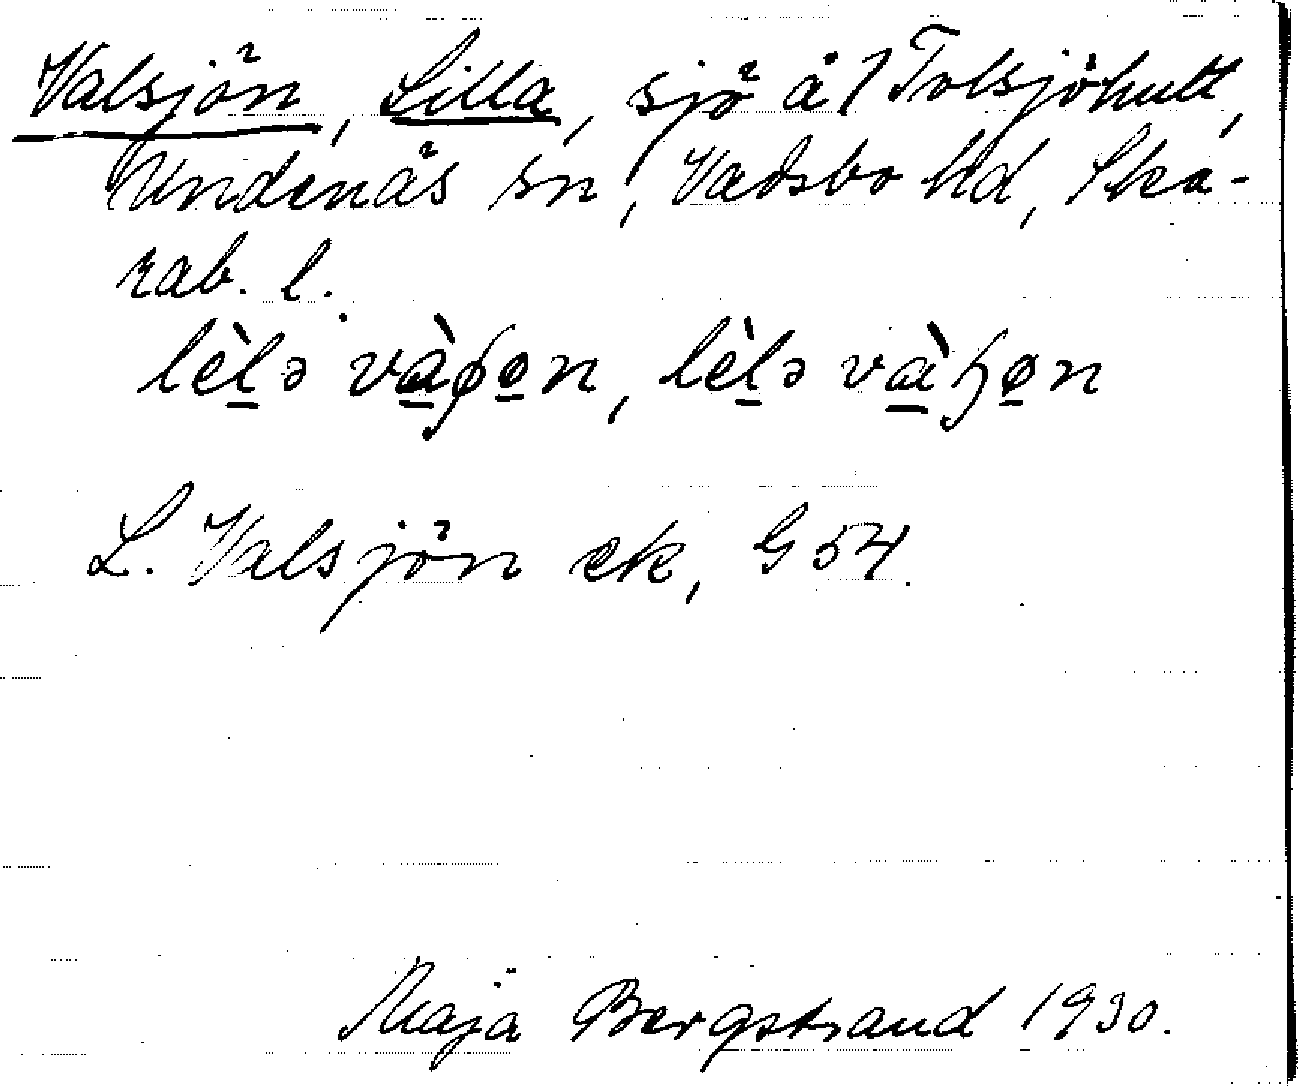 Valsjön, Lilla, sjö å 1 Tolsjöhult,
Undenäs sn, Vadsbo hd, Ska-
rab. l.
L. Valsjön ek, G 54.
Maja Bergstrand 1930.